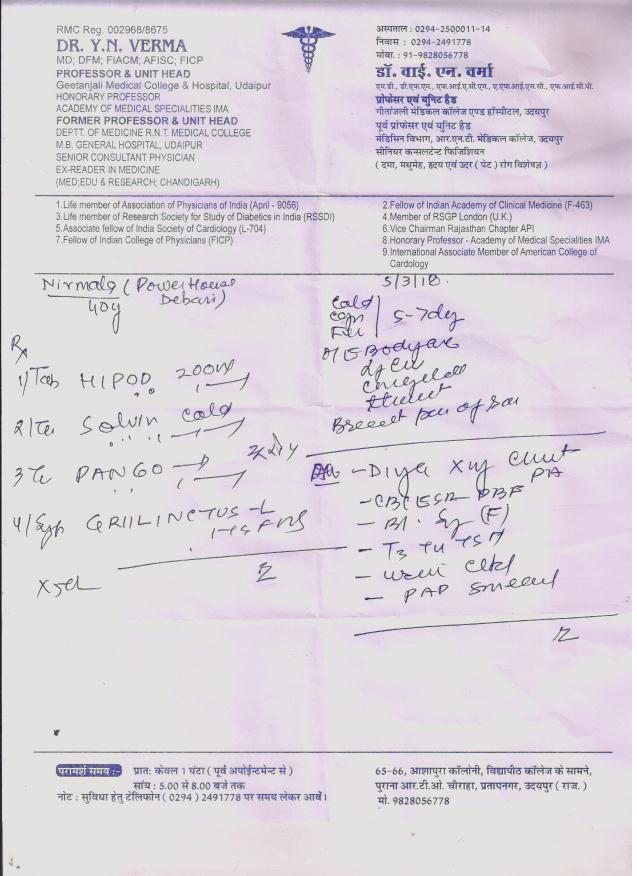 RMC Reg. 002968/8675
DR. Y.N. VERMA
MD; DFM; FIACM; AFISC; FICP
PROFESSOR & UNIT HEAD
Geetanjali Medical College & Hospital, Udaipur
HONORARY PROFESSOR
ACADEMY OF MEDICAL SPECIALITIES IMA
FORMER PROFESSOR & UNIT HEAD
DEPTT. OF MEDICINE R.N.T. MEDICAL COLLEGE
M.B. GENERAL HOSPITAL, UDAIPUR
SENIOR CONSULTANT PHYSICIAN
EX-READER IN MEDICINE
(MED;EDU & RESEARCH; CHANDIGARH)
अस्पताल : 0294-2500011-14
निवास : 0294-2491778
मोबा. : 91-9828056778
डॉ. वाई. एन. वर्मा
एम.डी., डी.एफ.एम., एफ.आई.ए.सी.एम., ए.एफ.आई.एस.सी., एफ.आई.सी.पी.
प्रोफेसर एवं यूनिट हैड
गीतांजली मेडिकल कॉलेज एण्ड हॉस्पीटल, उदयपुर
पूर्व प्रोफेसर एवं यूनिट हैड
मेडिसिन विभाग, आर.एन.टी. मेडिकल कॉलेज, उदयपुर
सीनियर कन्सलटेन्ट फिजिशियन
( दमा, मधुमेह, हृदय एवं उदर ( पेट ) रोग विशेषज्ञ )
1.Life member of Association of Physicians of India (April - 9056)
3.Life member of Research Society for Study of Diabetics in India (RSSDI)
5.Associate fellow of India Society of Cardiology (L-704)
7.Fellow of Indian College of Physicians (FICP)
2.Fellow of Indian Academy of Clinical Medicine (F-463)
4.Member of RSGP London (U.K.)
6.Vice Chairman Rajasthan Chapter API
8.Honorary Professor - Academy of Medical Specialities IMA
9.International Associate Member of American College of
Cardology
Nirmala (PowerHouse
Debari)
40y
5/3/18.
Cold
5-7dy
Rx
1/Tab HIPOD 200
2/ Solvin Cold
3 PANGO
4/Syp GRILINCTUS-L
PA
- CBC ESR PBF
- Bl. (F)
- T3 T4 TSH
- PAP
परामर्श समय :- प्रातः केवल 1 घंटा ( पूर्व अपोईन्टमेन्ट से )
सांय : 5.00 से 8.00 बजे तक
नोट : सुविधा हेतु टेलिफोन ( 0294 ) 2491778 पर समय लेकर आवें।
65-66, आशापुरा कॉलोनी, विद्यापीठ कॉलेज के सामने,
पुराना आर.टी.ओ. चौराहा, प्रतापनगर, उदयपुर ( राज. )
मो. 9828056778